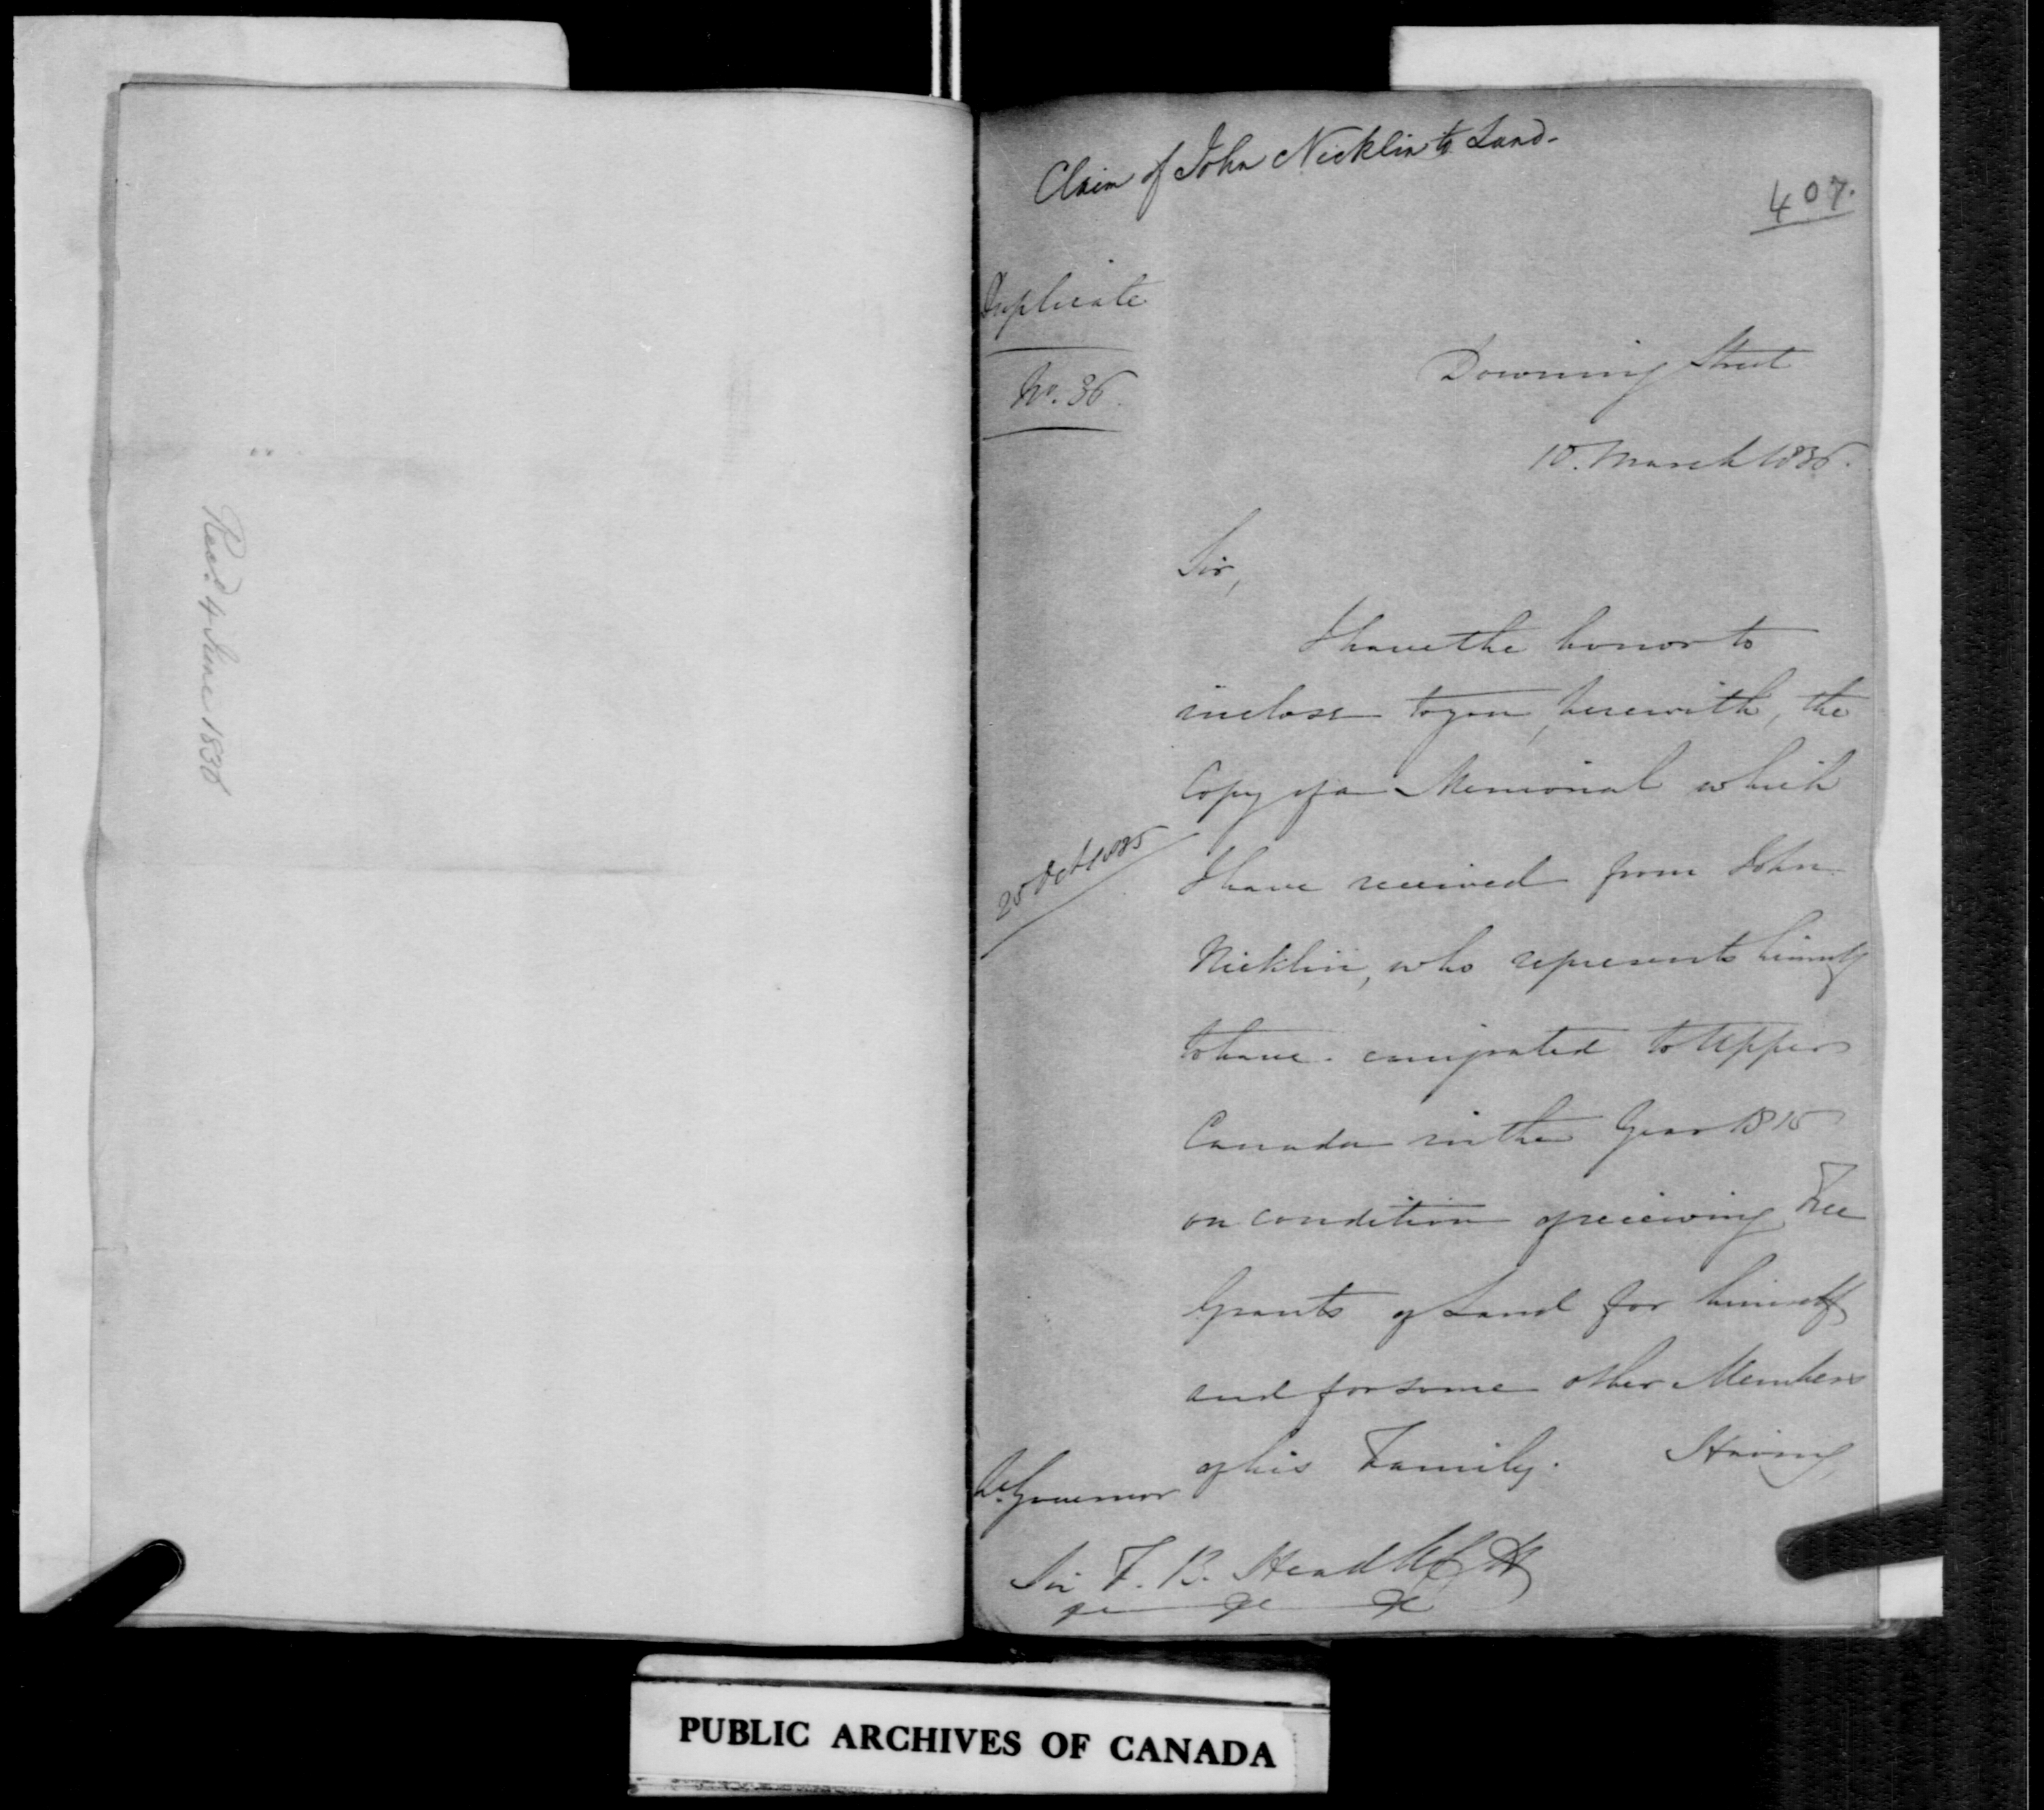 Recd. 4 June 1836
Claim of John Nicklin to Land.
407.
Duplicate
No. 36.
Downing Street
10. March 1836.
Sir,
I have the honor to
inclose to you, herewith, the
Copy of a Memorial which
25 Oct 1835
I have received from John
Nicklin, who represents himself
to have emigrated to Upper
Canada in the Year 1815
on condition of receiving Free
Grants of Land for himself
and for some other Members
of his Family. Having
Lt. Governor
Sir F. B. Head K.C.H.
&c &c &c
PUBLIC ARCHIVES OF CANADA